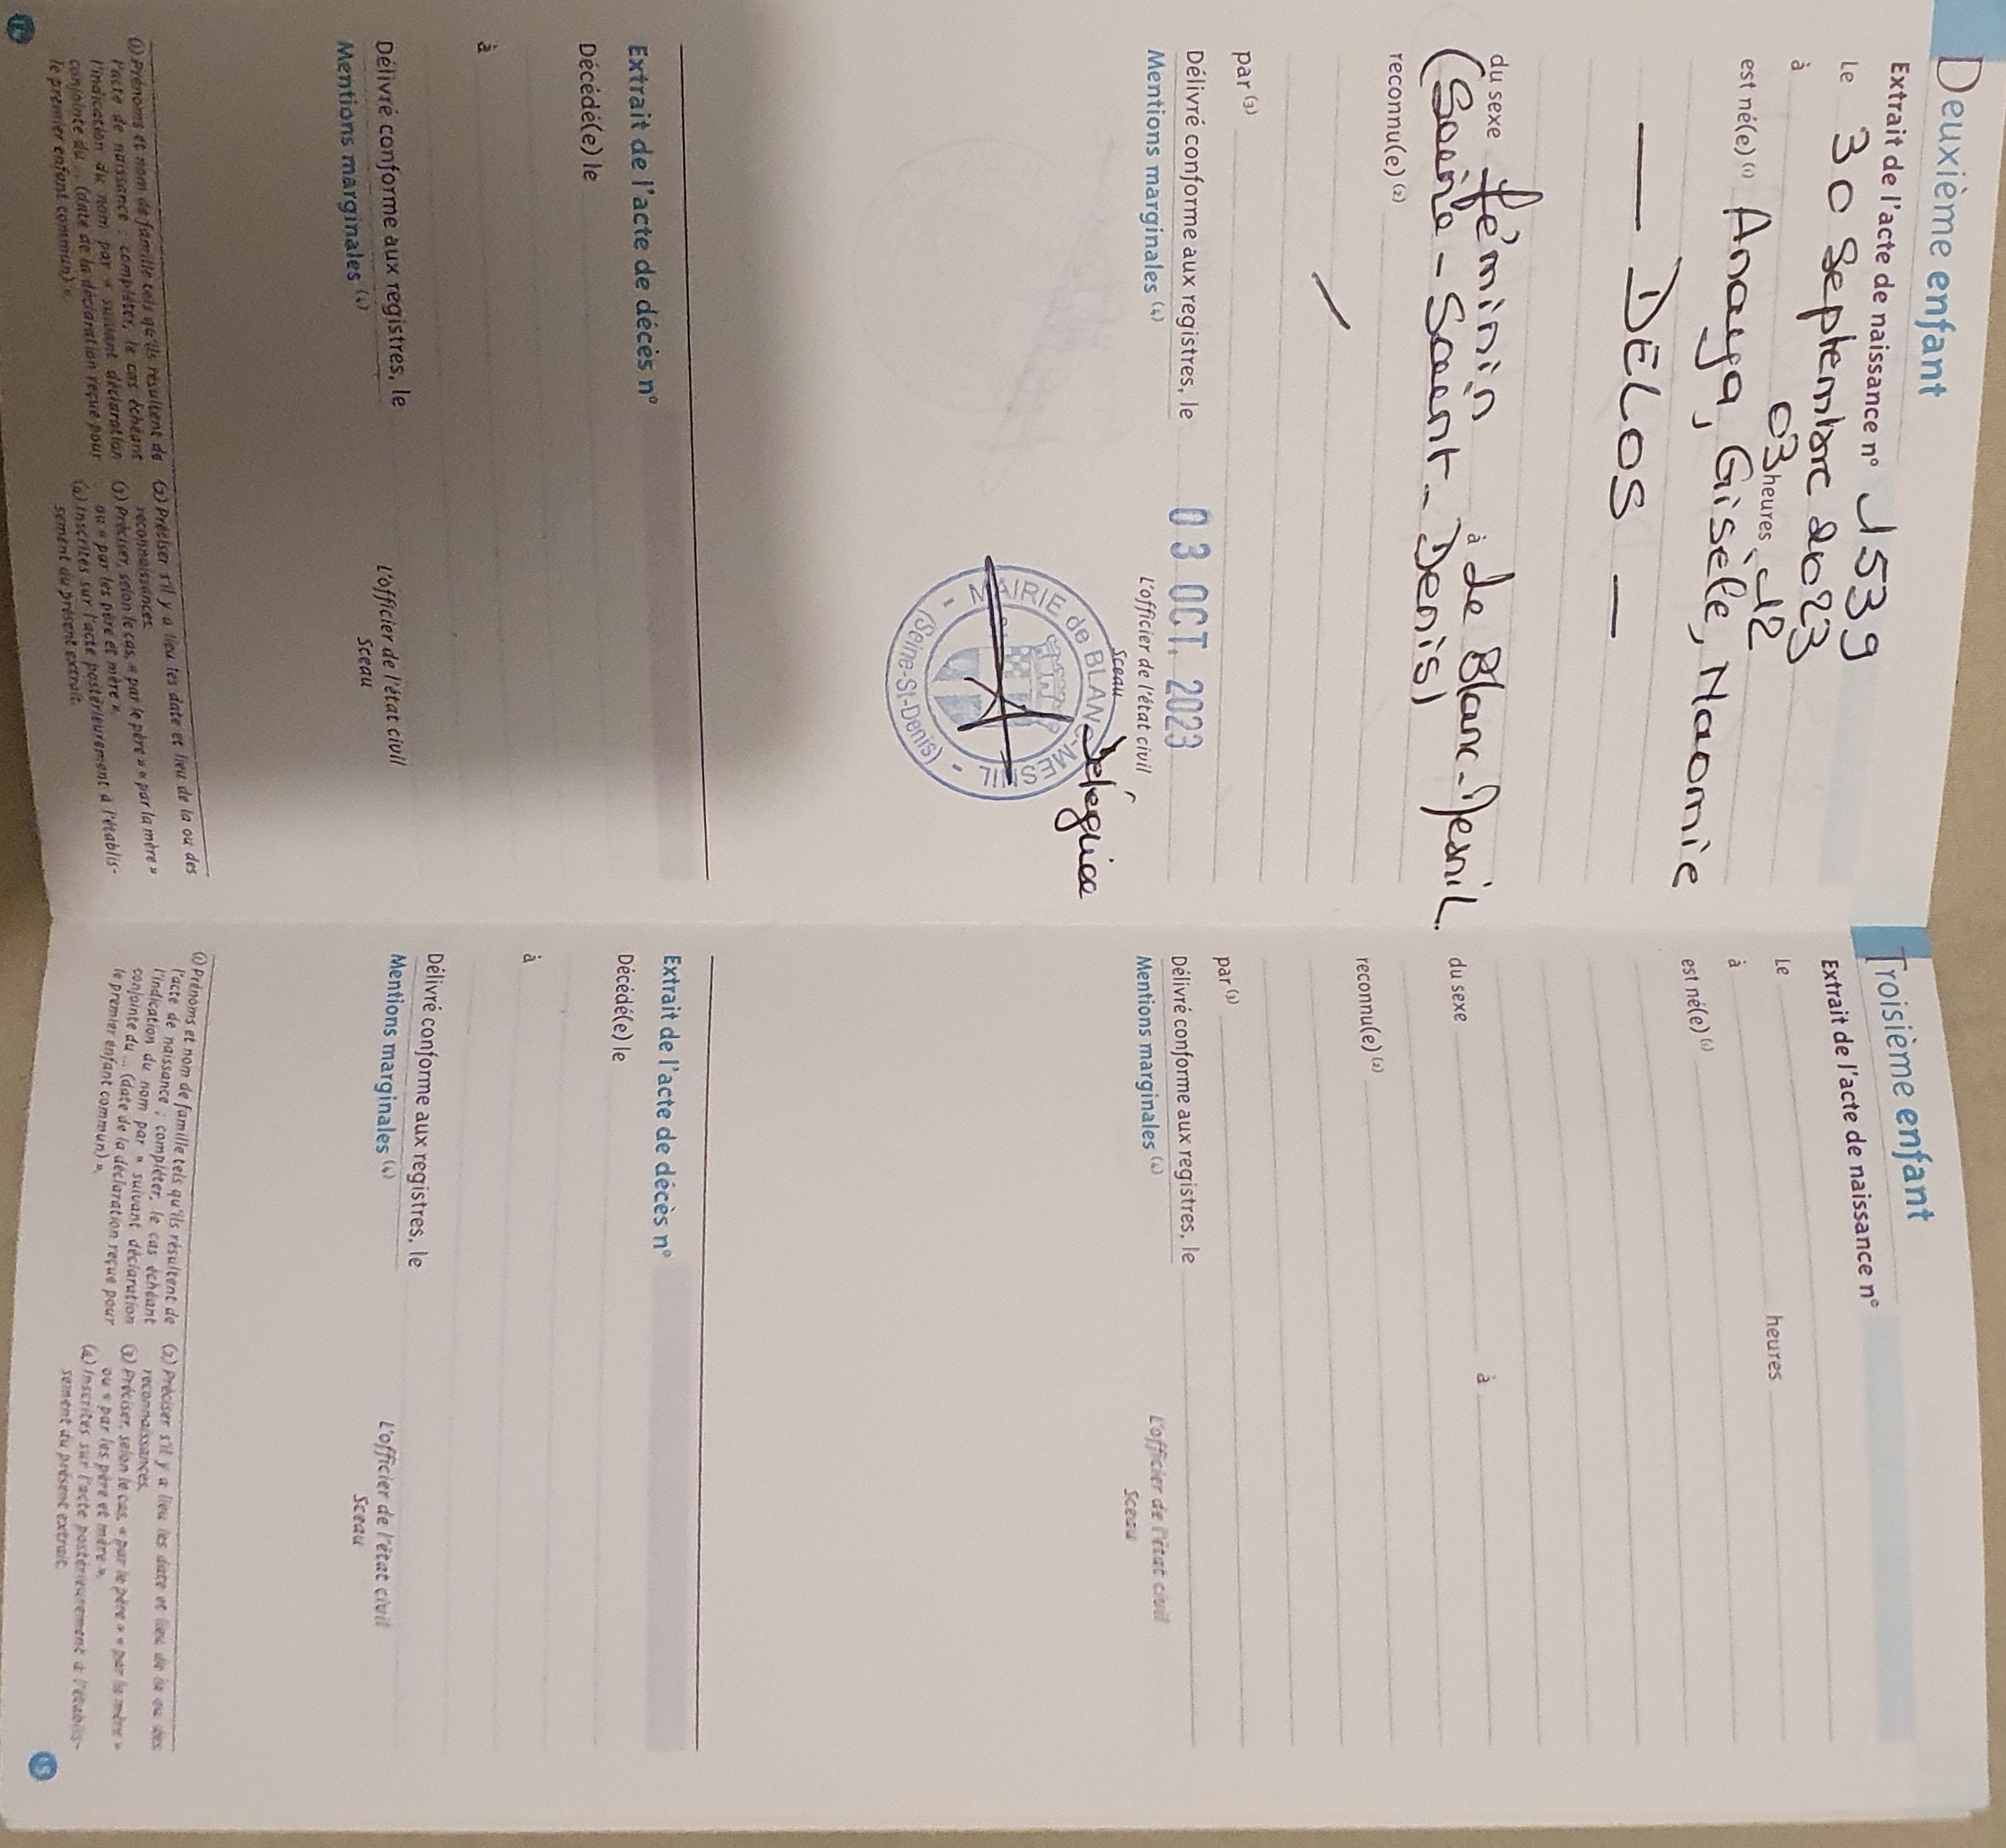 Deuxième enfant
Extrait de l'acte de naissance n° 1539
Le 30 Septembre 2023
à 03 heures 12
est né(e) (1) Anaya, Gisèle, Naomie
— DELOS —
du sexe féminin à Le Blanc-Mesnil.
(Seine-Saint-Denis)
reconnu(e) (2)
/
par (3)
Délivré conforme aux registres, le 03 OCT. 2023
Mentions marginales (4) L'officier de l'état civil
Sceau
déléguée
- MAIRIE de BLANC-MESNIL -
(Seine-St-Denis)
Extrait de l'acte de décès n°
Décédé(e) le
à
Délivré conforme aux registres, le
Mentions marginales (4) L'officier de l'état civil
Sceau
(1) Prénoms et nom de famille tels qu'ils résultent de
l'acte de naissance ; compléter, le cas échéant
l'indication du nom par « suivant déclaration
conjointe du ... (date de la déclaration reçue pour
le premier enfant commun) ».
(2) Préciser s'il y a lieu les date et lieu de la ou des
reconnaissances.
(3) Préciser, selon le cas, « par le père » « par la mère »
ou « par les père et mère ».
(4) Inscrites sur l'acte postérieurement à l'établis-
sement du présent extrait.
14
Troisième enfant
Extrait de l'acte de naissance n°
Le
à heures
est né(e) (1)
du sexe à
reconnu(e) (2)
par (3)
Délivré conforme aux registres, le
Mentions marginales (4) L'officier de l'état civil
Sceau
Extrait de l'acte de décès n°
Décédé(e) le
à
Délivré conforme aux registres, le
Mentions marginales (4) L'officier de l'état civil
Sceau
(1) Prénoms et nom de famille tels qu'ils résultent de
l'acte de naissance ; compléter, le cas échéant
l'indication du nom par « suivant déclaration
conjointe du ... (date de la déclaration reçue pour
le premier enfant commun) ».
(2) Préciser s'il y a lieu les date et lieu de la ou des
reconnaissances.
(3) Préciser, selon le cas, « par le père » « par la mère »
ou « par les père et mère ».
(4) Inscrites sur l'acte postérieurement à l'établis-
sement du présent extrait.
15